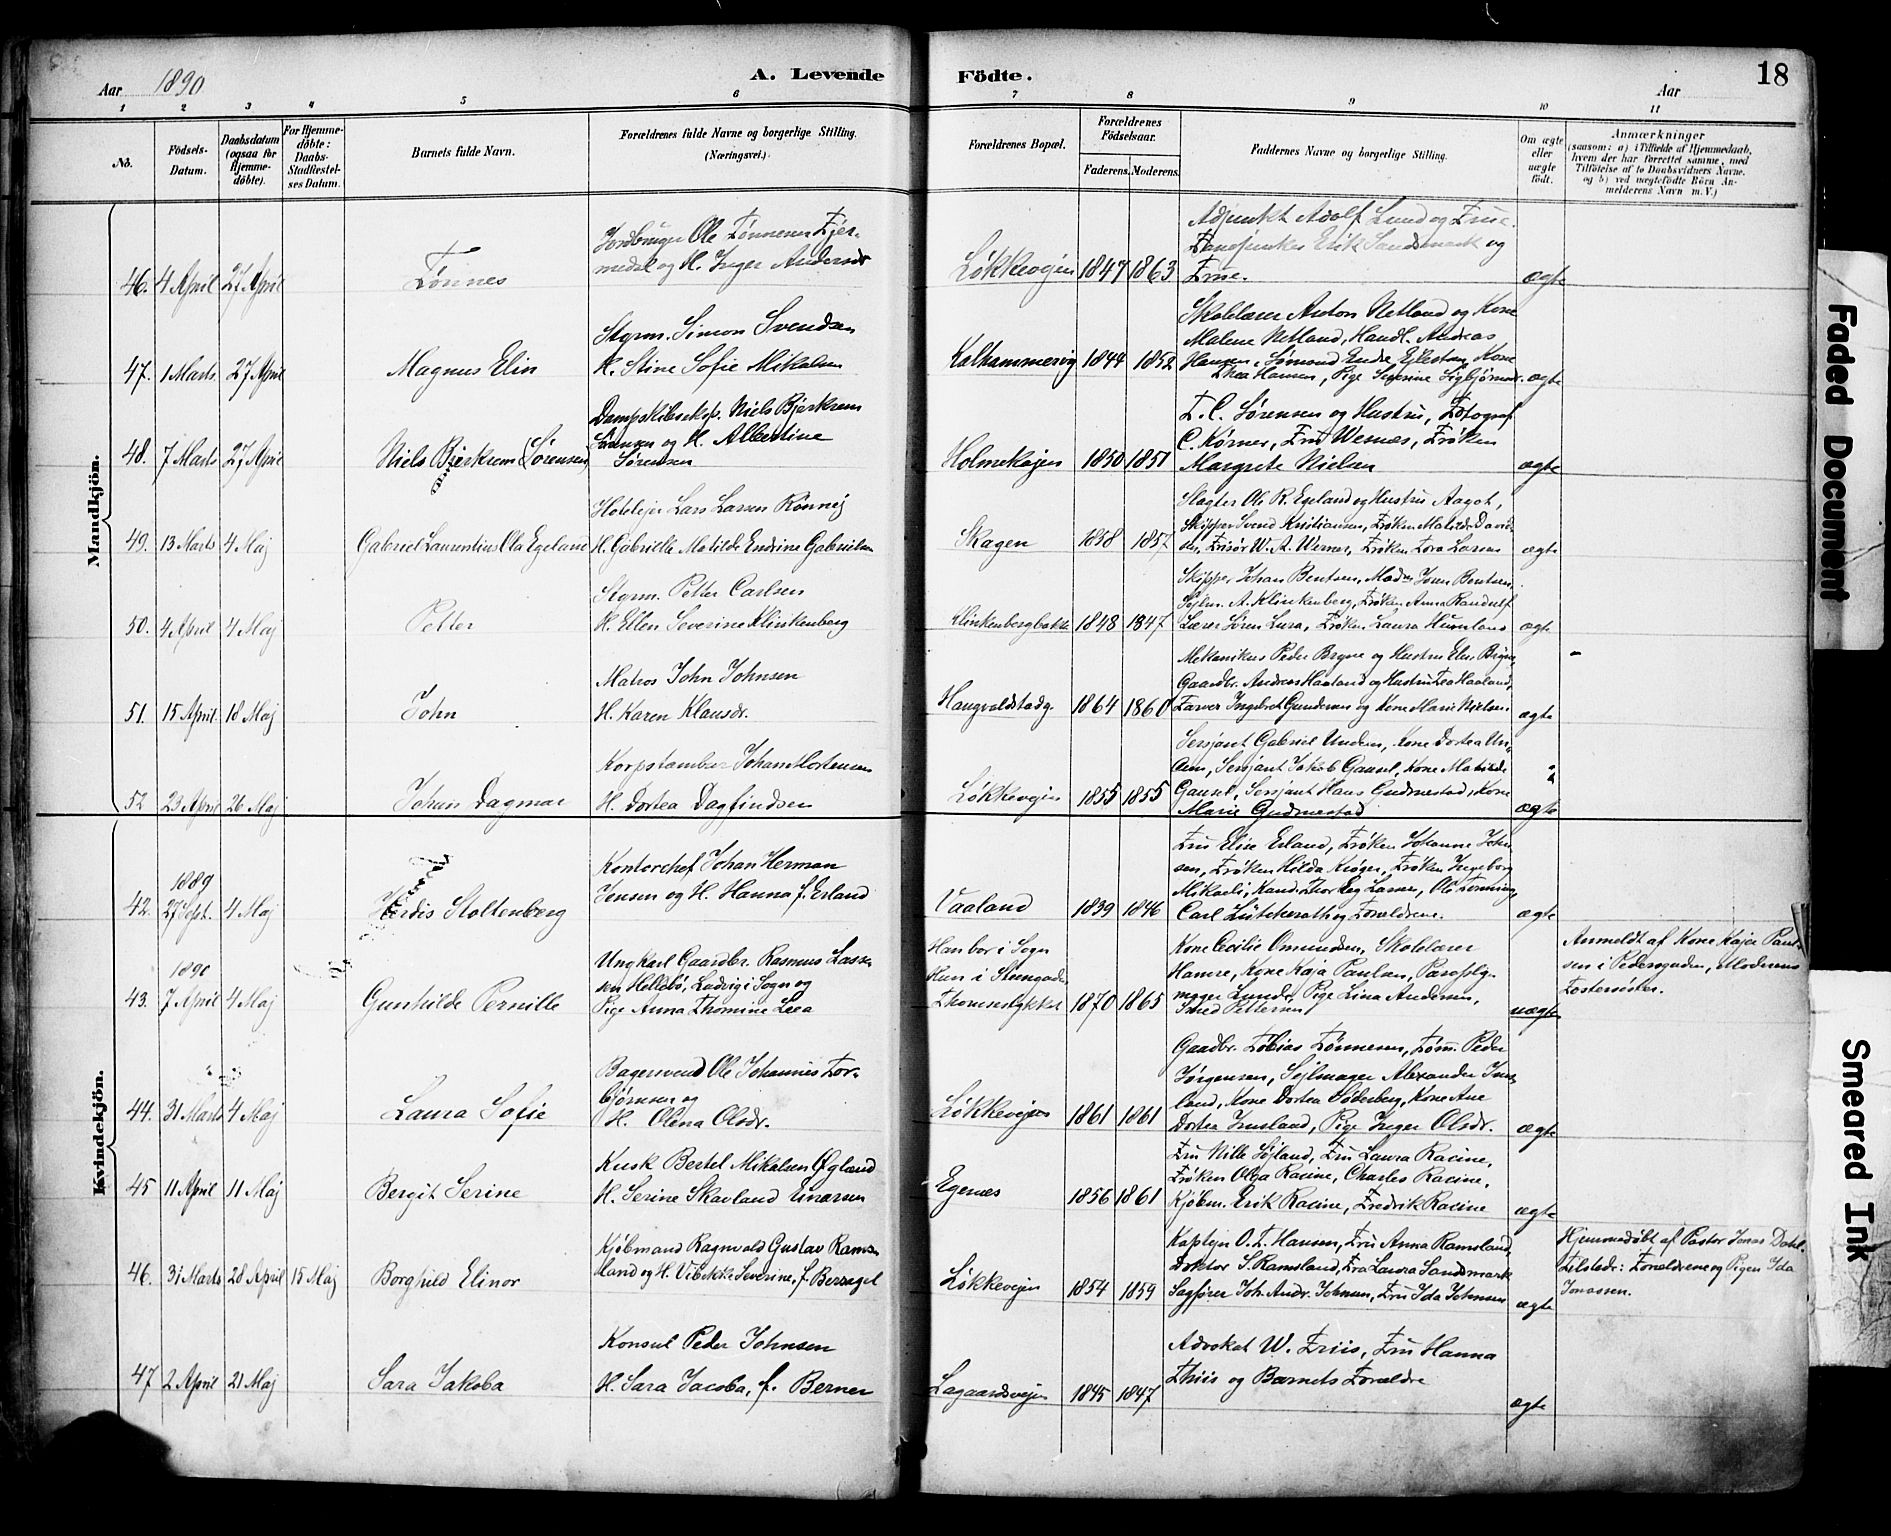 Aar 1890
A. Levende Födte.
Aar
18
1 2 3 4 5 6 7 8 9 10 11
No.
Födsels-Datum.
Daabsdatum (ogsaa for Hjemme-döbte).
For Hjemme-döbte: Daabs-Stadfæstel-ses Datum.
Barnets fulde Navn.
Forældrenes fulde Navne og borgerlige Stilling. (Næringsvei.)
Forældrenes Bopæl.
Forældrenes Födselsaar.
Faderens. Moderens.
Faddernes Navne og borgerlige Stilling.
Om ægte eller uægte födt.
Anmærkninger
(saasom: a) i Tilfælde af Hjemmedaab,
hvem der har forrettet samme, med
Tilföielse af to Daabsvidners Navne.
og b) ved uægtefödte Börn An-
melderens Navn m. V.)
Mandkjön.
46. 4 April 27 April
Tønnes
Jordbruger Ole Tønnesen Fjer-
medal og H. Inger Andersdr
Løkkevejen 1847 1863
Adjunkt Adolf Lund og Frue.
Erik Sandsmark og
Frue.
ægte
47. 1 Marts 27 April
Magnus Elin
Styrm. Simon Svendsen
H. Stine Sofie Mikalsen
Kalhammervig 1844 1852
Skolelærer Anton Netland og Kone
Malene Netland, Handl. Andreas
Hansen, Sømand Endre Kone
Thea Hansen, Pige Severine
ægte
48. 7 Marts 27 April
Niels Bjerkrem Sørensen
Dampskibsexp. Niels Bjerkrem
Sørensen og H. Albertine
Sørensen
Holmekajen 1850 1851
T. C. Sørensen og Hustru, Fotograf
C. Kørner, Fru Wernes, Frøken
Margrete Nielsen
ægte
49. 13 Marts 4 Maj
Gabriel Laurentius Ola Egeland
Hotelejer Lars Larsen Rønnej
H. Gabrielle Matilde Endrine Gabrielsen
Skagen 1838 1857
Slagter Ole R. Egeland og Hustru Aagot,
Skipper Svend Kristiansen, Frøken Matilde David-
sen, Frisør W. A. Werner, Frøken Tora Larsen
ægte
50. 4 April 4 Maj
Petter
Styrm. Petter Carlsen
H. Ellen Severine Klinkenberg
Klinkenbergbakke 1848 1847
Skipper Johan Bentsen, Mad. Bentsen
A. Klinkenberg, Frøken Anna
Lærer Søren Lura, Frøken Laura
ægte
51. 15 April 18 Maj
John
Matros John Johnsen
H. Karen Klausdr.
Haugvaldstadg. 1864 1860
Mekanikus Peder Bryne og Hustru Elen Bryne,
Gaardbr. Andreas Haaland og Hustru Lea Haaland,
Farver Ingebret Gundersen og Kone Marie Nielsen
ægte
52 23 April 26 Maj
Johan Dagmar
Korpstambur Johan Mortensen
H. Dortea Dagfindsen
Løkkevejen 1855 1855
Sersjant Gabriel Undem, Kone Dortea Un-
dem, Sersjant Jakob Gausel, Kone Matilde
Gausel, Sersjant Hans Gudmestad, Kone
Marie Gudmestad
ægte
Kvindekjön.
1889
42. 27 Sept. 4 Maj
Herdis Stoltenberg
Kontorchef Johan Herman
Jensen og H. Hanna f. Erland
Vaaland 1839 1846
Fru Elise Erland, Frøken Johanne John-
sen, Frøken Hilda Krøger, Frøken Ingeborg
Mikaeli, Kand. Larsen, Ole
Carl Lütcherath og Forældrene.
ægte
1890
43. 7 April 4 Maj
Gunhilde Pernille
Ungkarl Gaardbr. Rasmus Lasse-
sen Hellebø, Ladvig i Sogn og
Pige Anna Thomine Lea
Han bor i Sogn
Hun i Steengaden
1870 1865
Kone Cecilie Omundsen, Skolelærer
Hamre, Kone Kaja Paulsen, Paraply-
mager Lunde, Pige Lina Andersen,
Smed Pettersen
uægte
Anmeldt af Kone Kaja Paul-
sen i Pedersgaden, Moderens
Fostersøster.
44. 31 Marts 4 Maj
Laura Sofie
Bagersvend Ole Johannes Tor-
bjørnsen og
H. Olena Olsdr.
Løkkevejen 1861 1861
Gaardbr. Tobias Tønnesen, Tøm. Peder
Jørgensen, Sejlmager Alexander
land, Kone Dortea Søderberg, Kone Ane
Dortea Pige Inger Olsdr.
ægte
45 11 April 11 Maj
Bergit Serine
Kusk Bertel Mikalsen Øgland
H. Serine Skavland Einarsen
Egenes 1856 1861
Fru Nille Sjøland, Fru Laura Racine,
Frøken Olga Racine, Charles Racine,
Kjøbm. Erik Racine, Fredrik Racine
ægte
46. 31 Marts 28 April 15 Maj
Borghild Elinor
Kjøbmand Ragnvald Gustav Rams-
land og H. Vibekke Severine, f. Bersagel
Løkkevejen 1854 1859
Kaptejn O. T. Hansen, Fru Anna Ramsland,
Doktor S. Ramsland, Fru Laura Sandsmark
Sagfører Joh. Andr. Johnsen, Fru Ida Johnsen
ægte
Hjemmedøbt af Pastor Jonas Dahl.
Tilstede: Forældrene og Pigen Ida
Jonassen.
47 2 April 21 Maj
Sara Jakoba
Konsul Peder Johnsen
H. Sara Jacoba, f. Berner
Lagaardsvejen 1845 1847
Advokat W. Friis, Fru Hanna
Thiis og Barnets Forældre
ægte
Faded Document
Smeared Ink